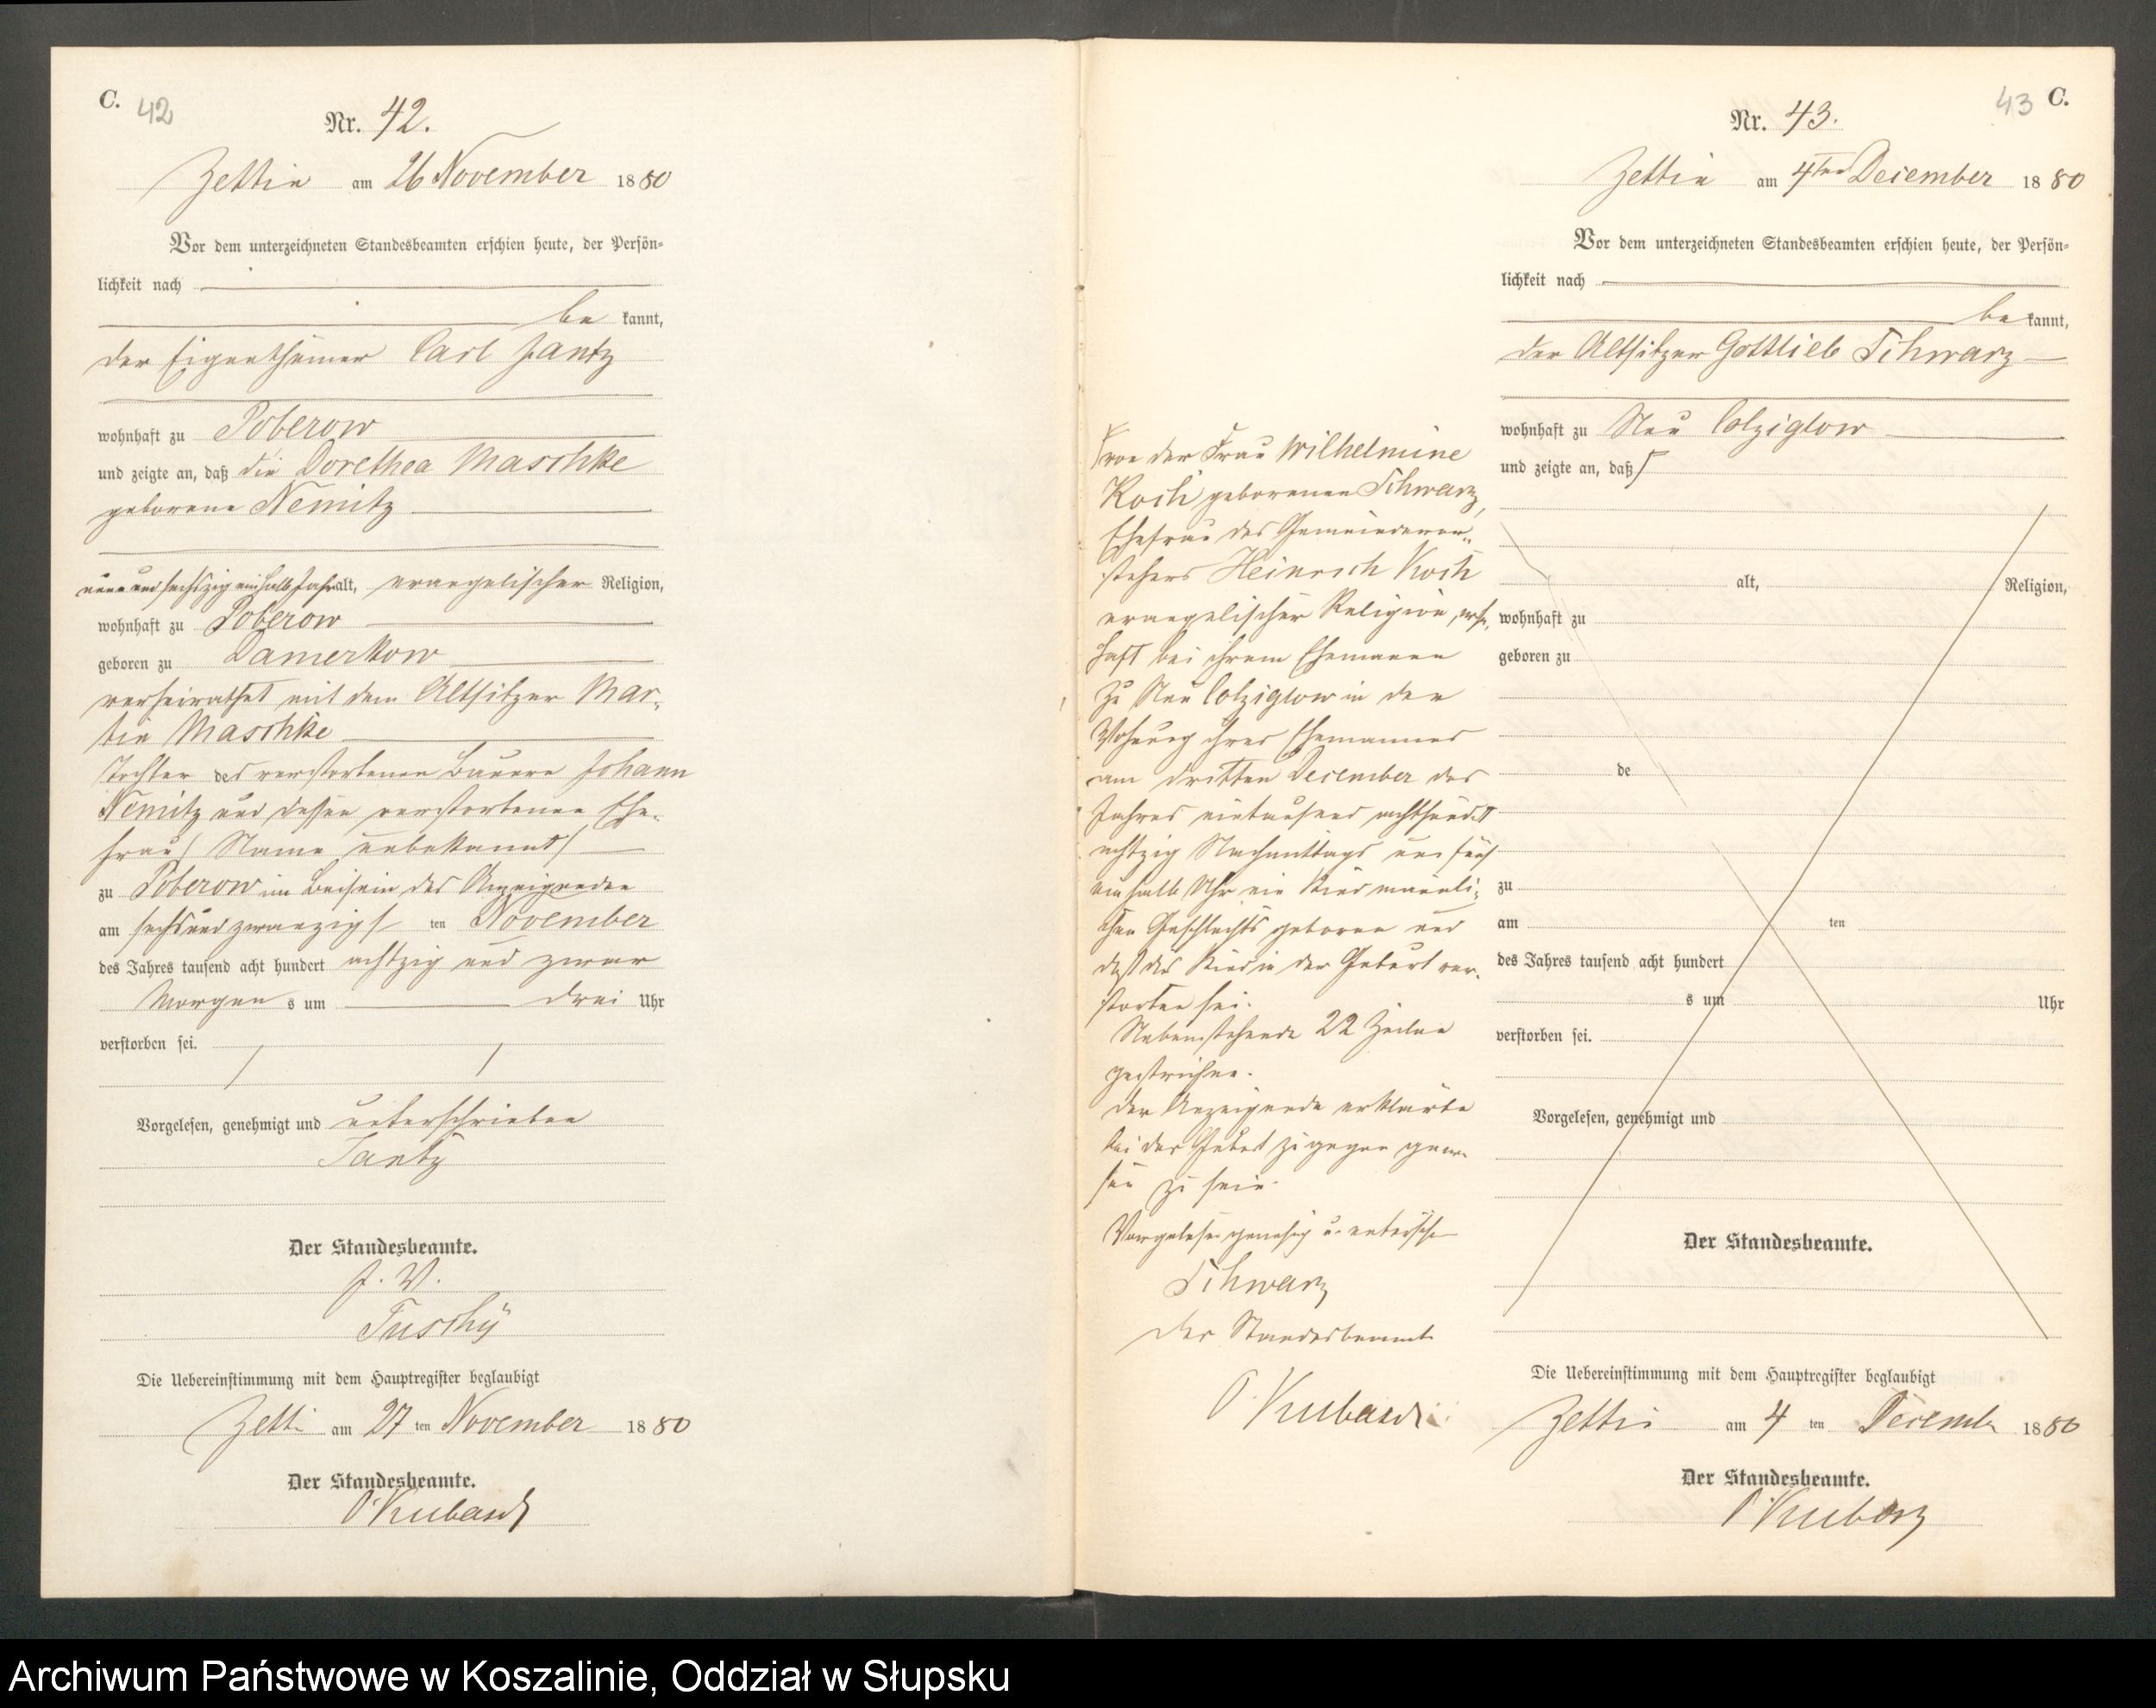 C. 42
Nr. 42.
Zettin am 26 November 1880
Vor dem unterzeichneten Standesbeamten erschien heute, der Persön-
lichkeit nach
be kannt,
der Eigenthümer Carl Jantz
wohnhaft zu Poberow
und zeigte an, daß die Dorethea Maschke
geborene Nemitz
neun und sechszig einhalb Jahr alt, evangelischer Religion,
wohnhaft zu Poberow
geboren zu Damerkow
verheirathet mit dem Altsitzer Mar-
tin Maschke
Tochter des verstorbenen Bauern Johann
Nemitz und dessen verstorbenen Ehe-
frau / Name unbekannt /
zu Poberow im Beisein des Anzeigenden
am sechsundzwanzigsten November
des Jahres tausend acht hundert achtzig und zwar
Morgens um drei Uhr
verstorben sei.
Vorgelesen, genehmigt und unterschrieben
Jantz
Der Standesbeamte.
J. V.
Tuschÿ
Die Uebereinstimmung mit dem Hauptregister beglaubigt
Zetti am 27 ten November 1880
Der Standesbeamte.
43 C.
Nr. 43.
Zettin am 4ten December 1880
Vor dem unterzeichneten Standesbeamten erschien heute, der Persön-
lichkeit nach
be kannt,
der Altsitzer Gottlieb Schwarz
wohnhaft zu Neu Colziglow
und zeigte an, daß
alt, Religion,
wohnhaft zu
geboren zu
de
zu
am ten
des Jahres tausend acht hundert
s um Uhr
verstorben sei.
Vorgelesen, genehmigt und
Der Standesbeamte.
von der Frau Wilhelmine
Koch geborenen Schwarz,
Ehefrau des Gemeindevor-
stehers Heinrich Koch
evangelischer Religion, wohn-
haft bei ihrem Ehemanne
zu Neu Colziglow in der
Wohnung ihres Ehemannes
am dritten December des
Jahres eintausend achthundert
achtzig Nachmittags um fünf
einhalb Uhr ein Kind männli-
chen Geschlechts geboren und
daß das Kind in der Geburt ver-
storben sei.
Nebenstehende 22 Zeilen
gestrichen.
Der Anzeigende erklärte
bei der Geburt zugegen gewe-
sen zu sein.
Vorgelesen genehmig u. untersch
Schwarz
Der Standesbeamte
Die Uebereinstimmung mit dem Hauptregister beglaubigt
Zettin am 4 ten December 1880
Der Standesbeamte.
Archiwum Państwowe w Koszalinie, Oddział w Słupsku